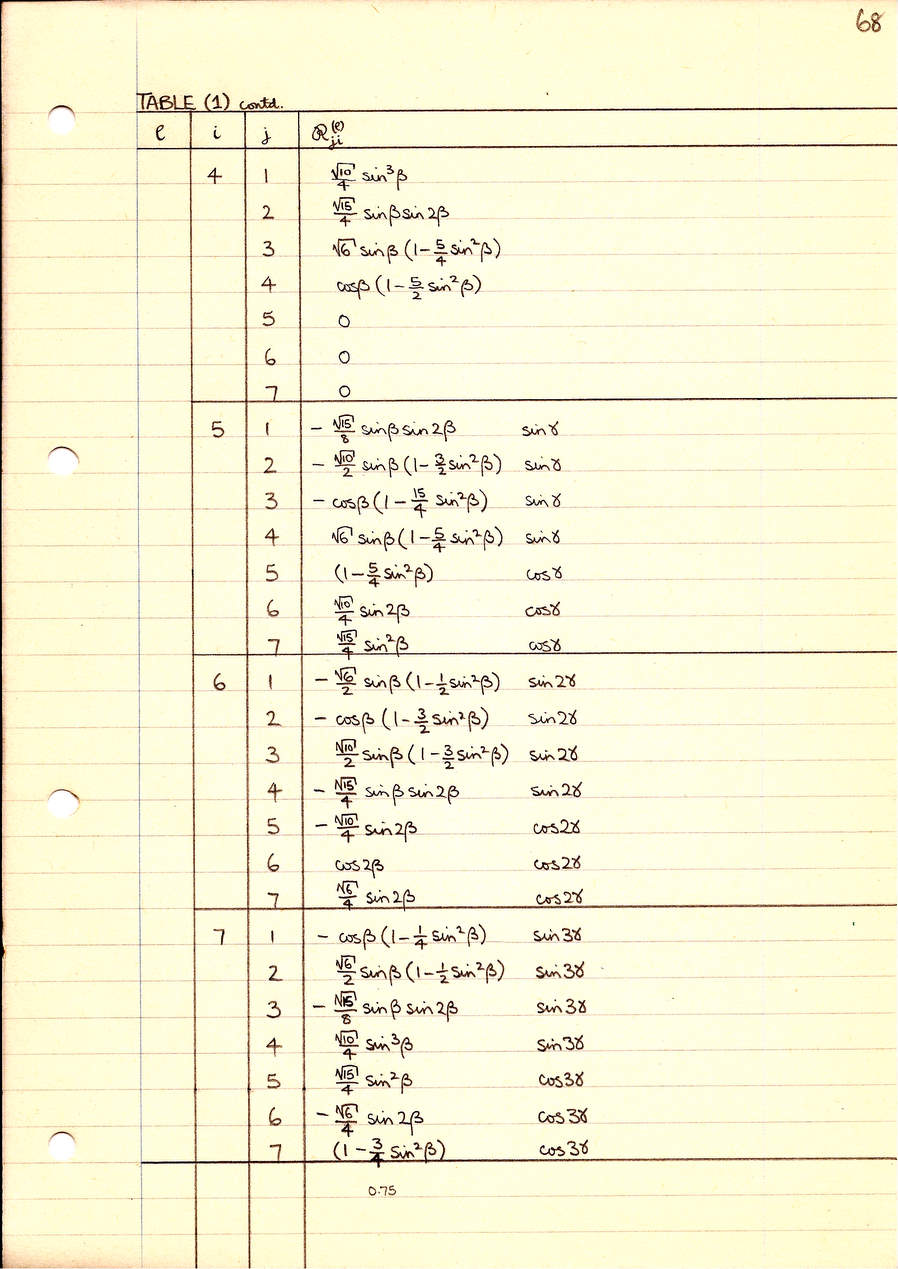 68
TABLE (1) contd.
ℓ i j ℛ_ji^(ℓ)
4 1 √10/4 sin³β
2 √15/4 sinβ sin2β
3 √6 sinβ (1 − 5/4 sin²β)
4 cosβ (1 − 5/2 sin²β)
5 0
6 0
7 0
5 1 − √15/8 sinβ sin2β sinγ
2 − √10/2 sinβ (1 − 3/2 sin²β) sinγ
3 − cosβ (1 − 15/4 sin²β) sinγ
4 √6 sinβ (1 − 5/4 sin²β) sinγ
5 (1 − 5/4 sin²β) cosγ
6 √10/4 sin2β cosγ
7 √15/4 sin²β cosγ
6 1 − √6/2 sinβ (1 − 1/2 sin²β) sin2γ
2 − cosβ (1 − 3/2 sin²β) sin2γ
3 √10/2 sinβ (1 − 3/2 sin²β) sin2γ
4 − √15/4 sinβ sin2β sin2γ
5 − √10/4 sin2β cos2γ
6 cos2β cos2γ
7 √6/4 sin2β cos2γ
7 1 − cosβ (1 − 1/4 sin²β) sin3γ
2 √6/2 sinβ (1 − 1/2 sin²β) sin3γ
3 − √15/8 sinβ sin2β sin3γ
4 √10/4 sin³β sin3γ
5 √15/4 sin²β cos3γ
6 − √6/4 sin2β cos3γ
7 (1 − 3/4 sin²β) cos3γ
0.75